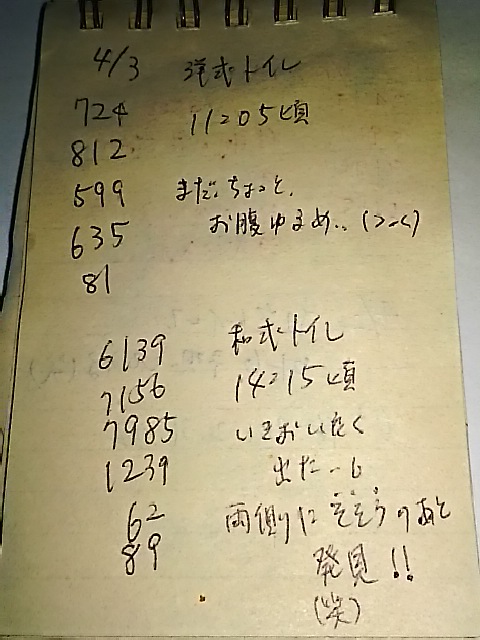 4/3 洋式トイレ
724 11:05頃
812
599 まだ、ちょっと、
635 お腹ゆるめ‥(>-<)
81
6139 和式トイレ
7156 14:15頃
7985 いきおいよく
1239 出た‥
62 両側にそそうのあと
89 発見!!
(笑)